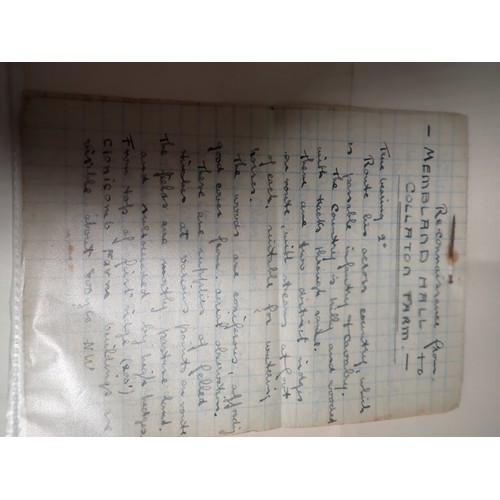 Reconnaissance from
- MEMBLAND HALL to
COLLATON FARM. -
True bearing 2°
Route lies across country, which
is passable infantry & Cavalry.
The Country is hilly and wooded
with tracks through same.
There are two distinct ridges
on route, with streams at foot
of each, suitable for watering
horses.
The woods are coniferous, affording
good cover from aerial observation.
There are supplies of felled
timber at various points on route
The fields are mostly pasture land.
and surrounded by high hedges
From top of first ridge
Farm buildings are
visible about NW